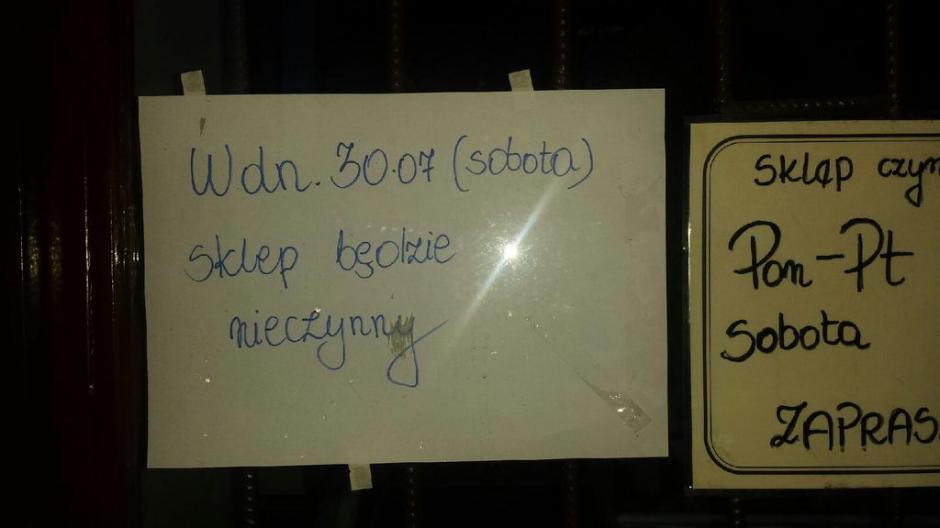 W dn. 30.07 (sobota)
sklep będzie
nieczynny
Skląp czyn
Pon-Pt
Sobota
ZAPRAS